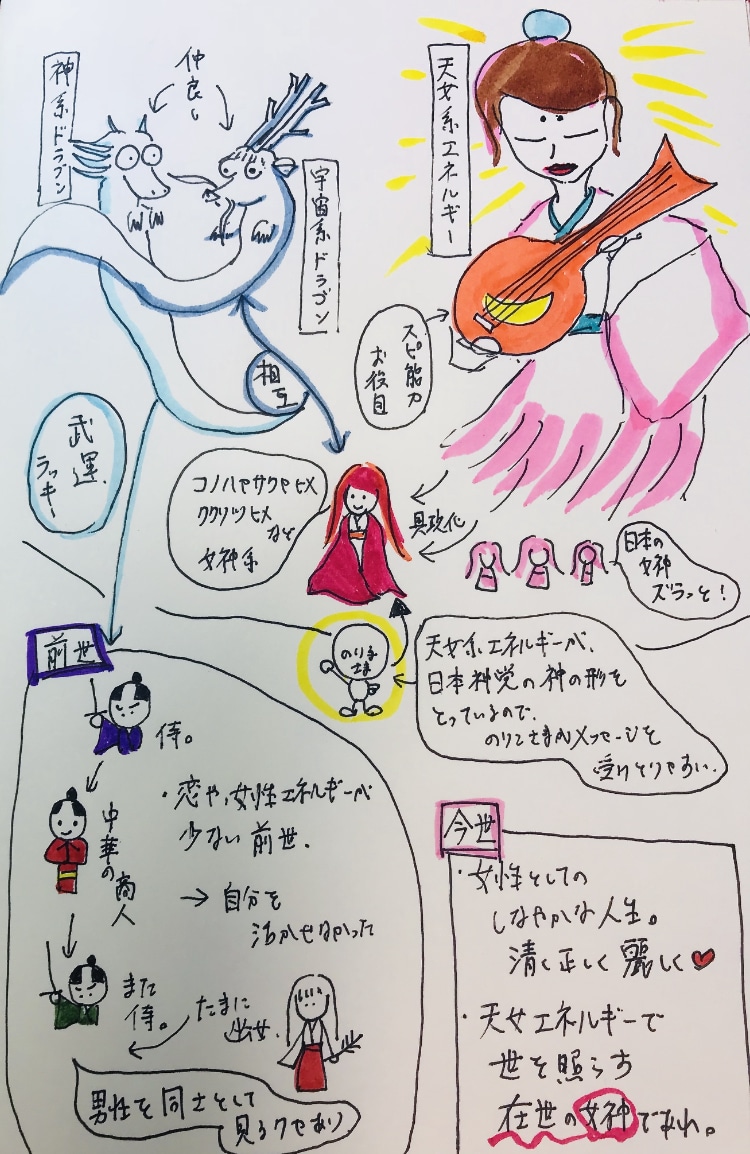 神系ドラゴン
仲良し
宇宙系ドラゴン
天女系エネルギー
スピ能力
お役目
相互
武運、
ラッキー
コノハナサクヤヒメ
ククリヒメ
など
女神系
具現化
日本の
女神
ズラっと!
のりこ
さま
天女系エネルギーが、
日本神党の神の形を
とっているので、
のりこさまがメッセージを
受けとりやすい。
前世
侍。
中華の商人
また
侍。
・恋や女性エネルギーが
少ない前世。
→自分を
活かせなかった
たまに
巫女。
男性を同士として
見るクセあり
今世
・女性としての
しなやかな人生。
清く正しく麗しく♥
・天女エネルギーで
世を照らす
在世の女神であれ。